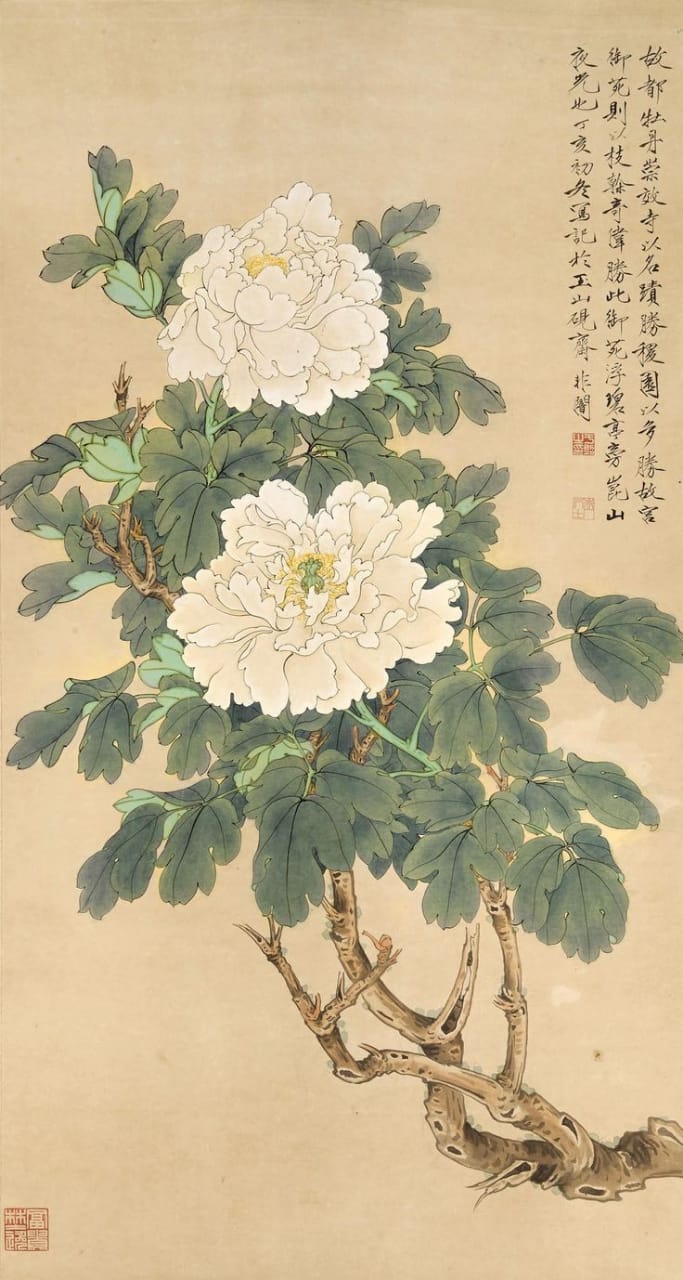 故都牡丹崇效寺以名蹟勝稷園以多勝故宮
御苑則以枝榦奇偉勝此御苑浮碧亭旁崑山
夜光也丁亥初冬寫記於玉山硯齋非闇